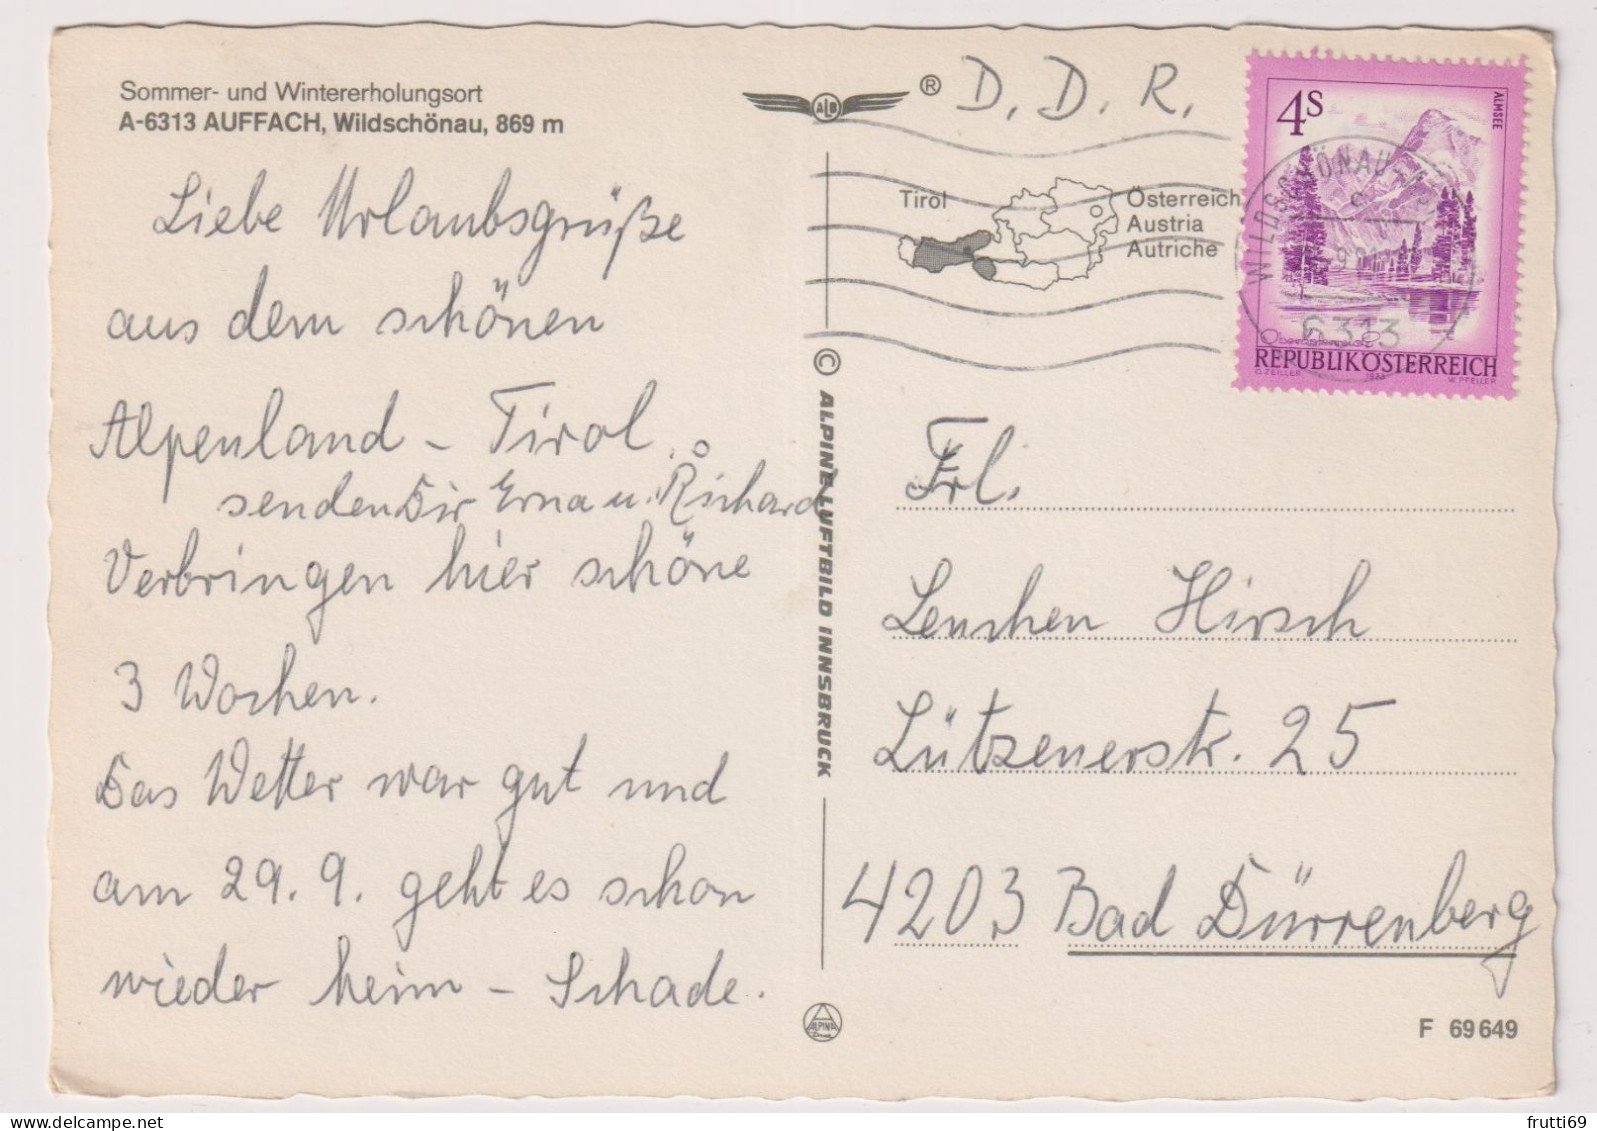 Sommer- und Wintererholungsort
A-6313 AUFFACH, Wildschönau, 869 m
Liebe Urlaubsgrüße
aus dem schönen
Alpenland - Tirol
senden Dir Erna u. Richard
Verbringen hier schöne
3 Wochen.
Das Wetter war gut und
am 29. 9. geht es schon
wieder heim - Schade.
ALB
®
D. D. R.
Tirol
Österreich
Austria
Autriche
© ALPINE LUFTBILD INNSBRUCK
4S
ALMSEE
WILDSCHÖNAU
6313
REPUBLIK ÖSTERREICH
O. ZEILLER 1973 W. PFEILER
Frl.
Lenchen Hirsch
Lützenerstr. 25
4203 Bad Dürrenberg
ALPINA
F 69649
frutti69